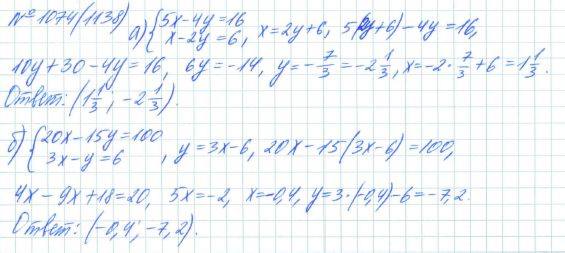 № 1074(1138) а) {5x-4y=16
x-2y=6, x=2y+6, 5(2y+6)-4y=16,
10y+30-4y=16, 6y=-14, y=-7/3=-2 1/3, x=-2·7/3+6=1 1/3.
Ответ: (1 1/3; -2 1/3).
б) {20x-15y=100
3x-y=6, y=3x-6, 20x-15(3x-6)=100,
4x-9x+18=20, 5x=-2, x=-0,4, y=3·(-0,4)-6=-7,2.
Ответ: (-0,4; -7,2).